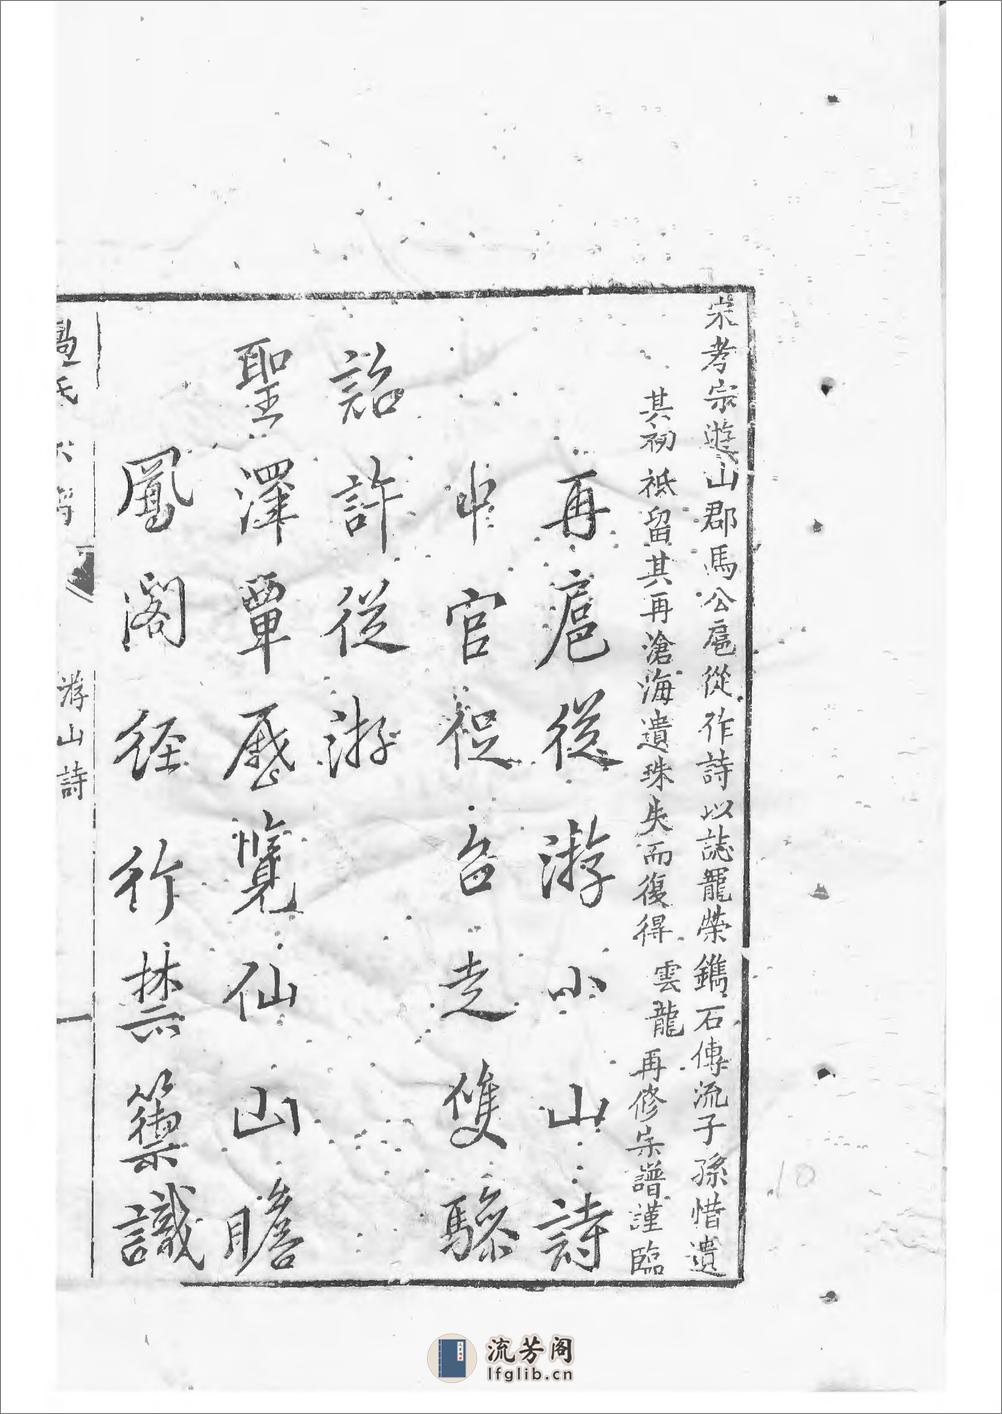 宋孝宗遊山郡馬公扈從作詩以誌寵榮鐫石傳流子孫惜遺
其初祗留其再滄海遺珠失而復得 雲龍 再修宗譜謹臨
再扈從游小山詩
中官促召走雙驂
詔許從游
聖澤覃歷覽仙山瞻
鳳閣經行禁籞識
游山詩
一
10
流芳阁
lfglib.cn